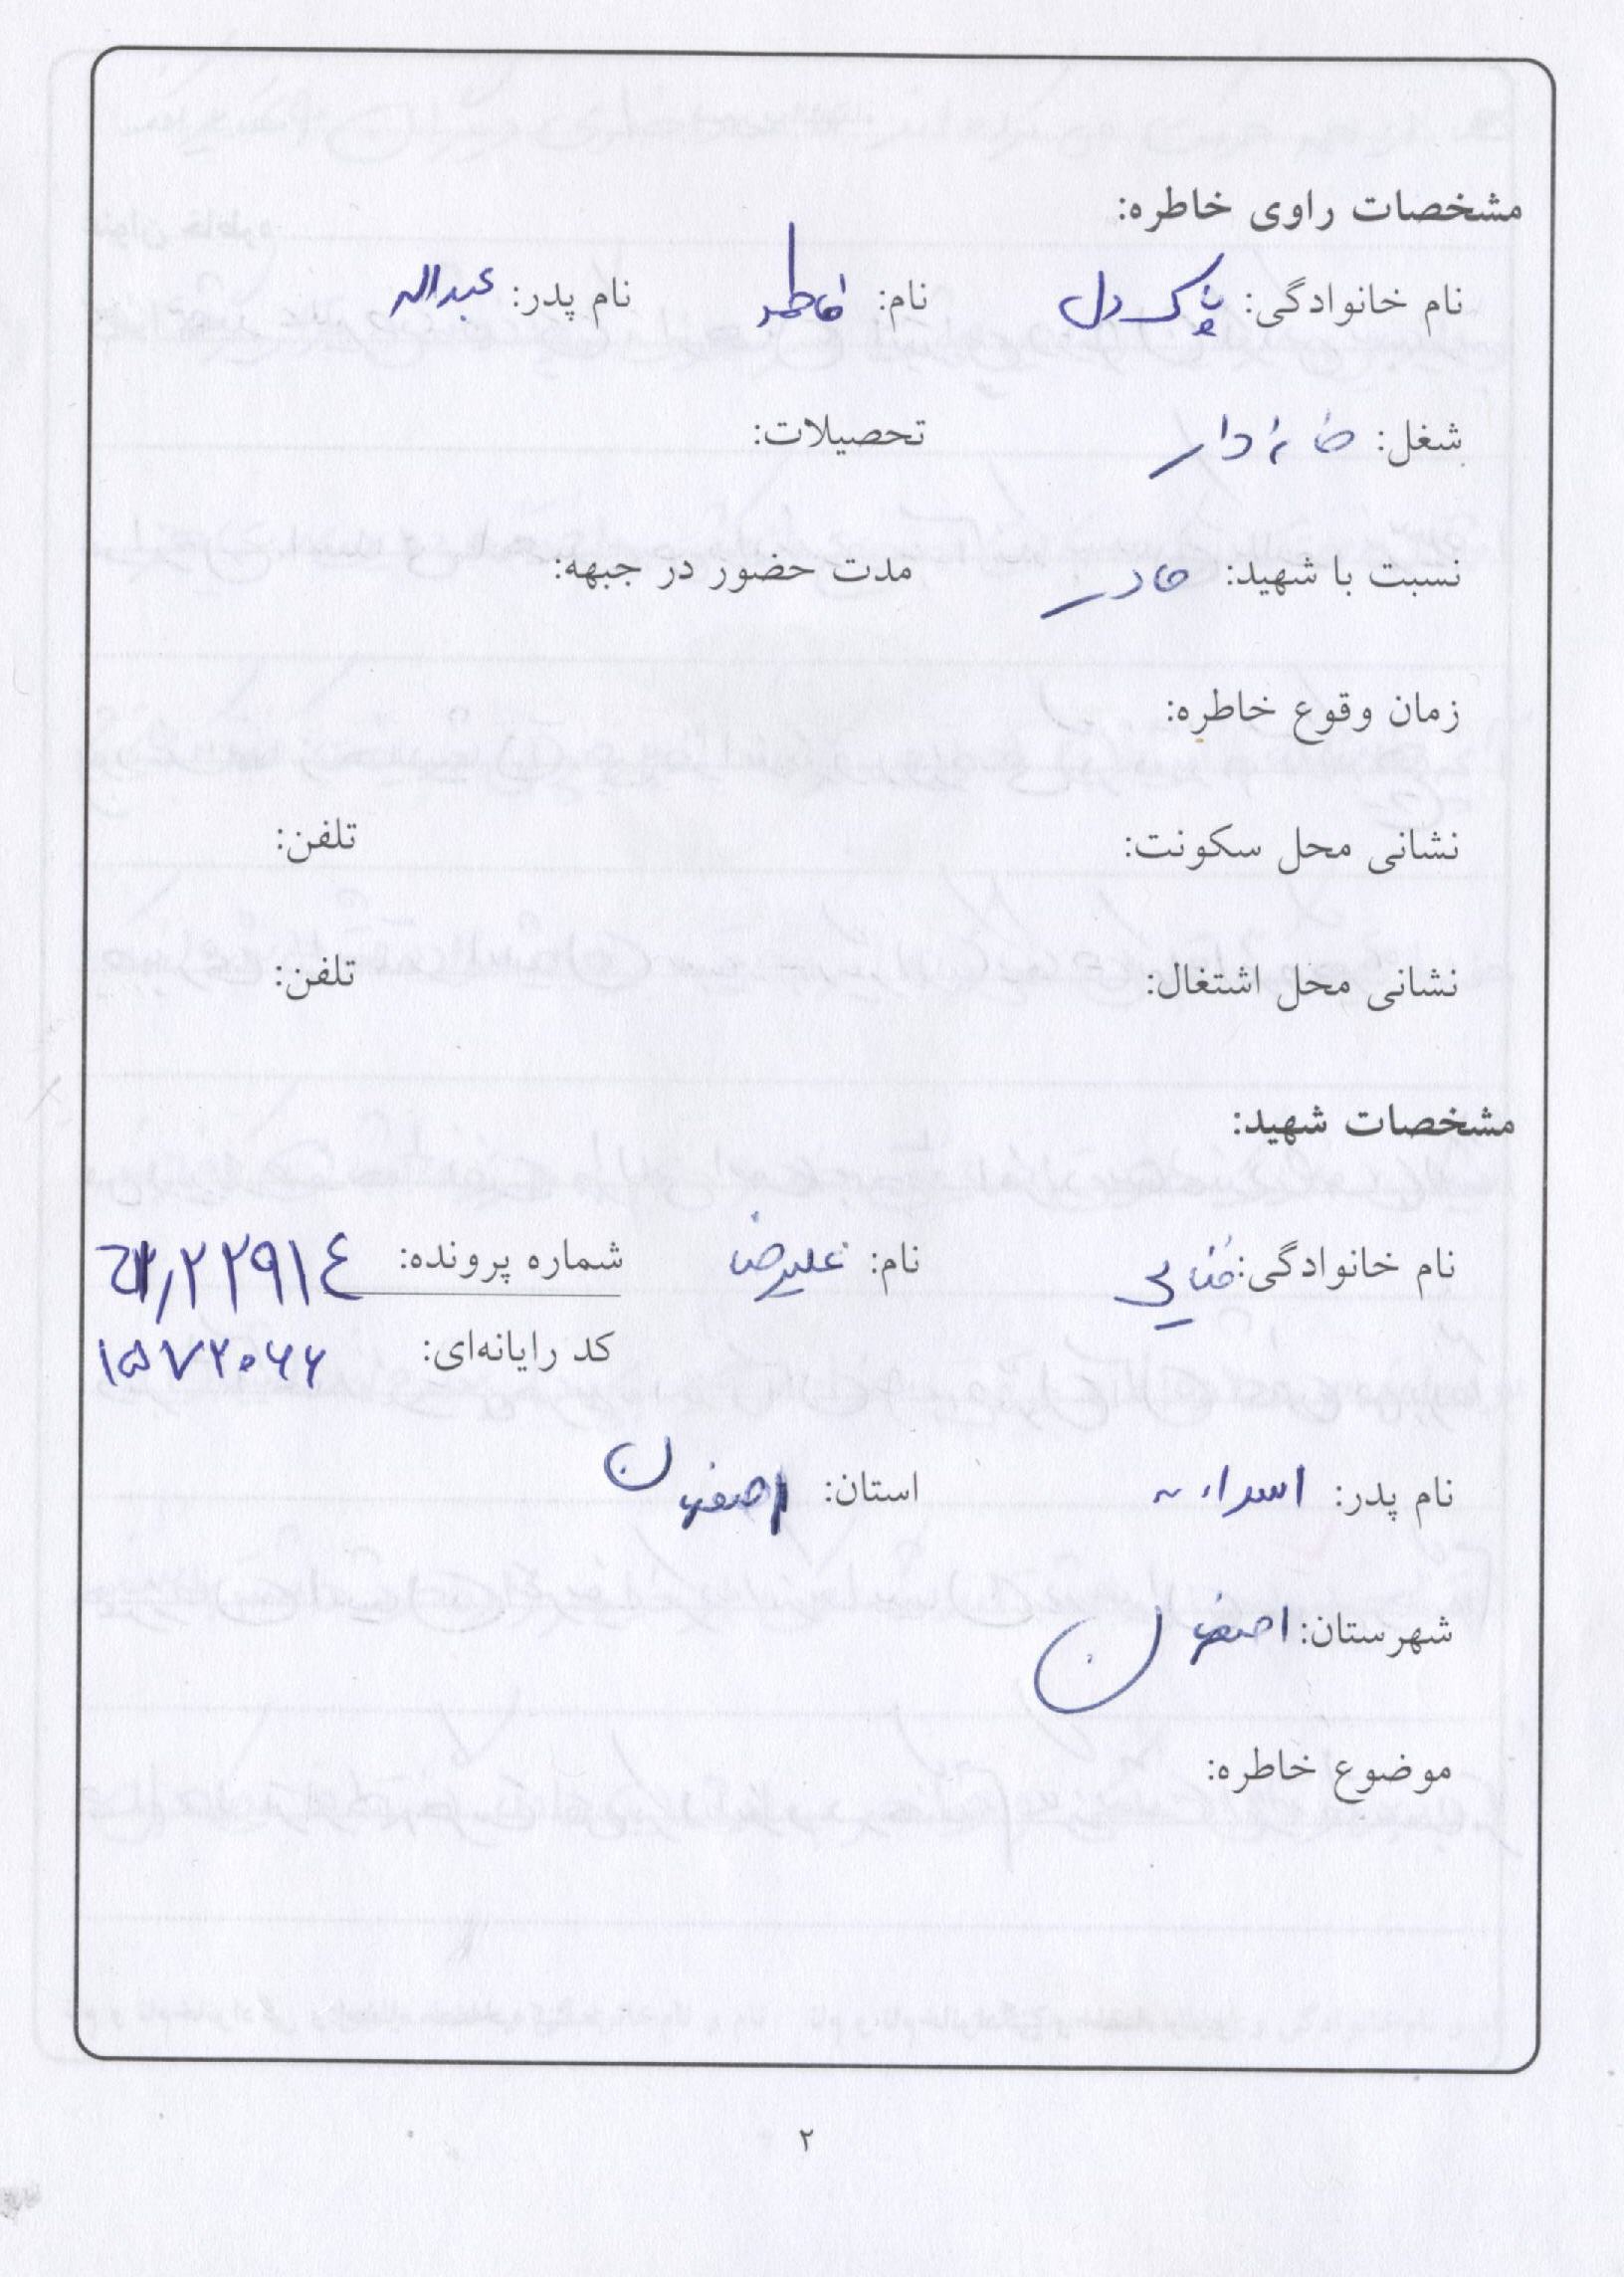 مشخصات راوی خاطره:
نام خانوادگی: پاکدل نام: فاطمه نام پدر: عبداله
شغل: خانه دار تحصیلات:
نسبت با شهید: مادر مدت حضور در جبهه:
زمان وقوع خاطره:
نشانی محل سکونت: تلفن:
نشانی محل اشتغال: تلفن:
مشخصات شهید:
نام خانوادگی: نام: علیرضا شماره پرونده:
کد رایانه‌ای: ۱۵۷۲۰۶۶
نام پدر: استان: اصفهان
شهرستان: اصفهان
موضوع خاطره:
۲